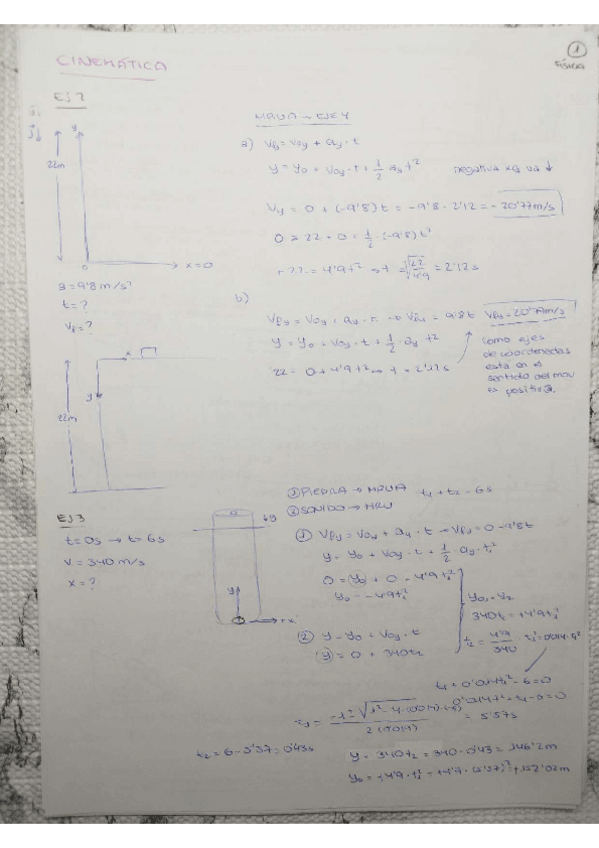 1
FÍSICA
CINEMÁTICA
EJ 2
y
22m
0
x=0
g = 9'8 m/s²
t = ?
Vf = ?
MRUA → EJE Y
a) Vfy = Voy + ay · t
y = yo + Voy · t + 1/2 ay t²
negativa xq va ↓
Vy = 0 + (-9'8) t = -9'8 · 2'12 = -20'77 m/s
0 = 22 + 0 + 1/2 · (-9'8) t²
+22 = 4'9 t² → t = √22/4'9 = 2'12 s
b)
x
y
22m
Vfy = Voy + ay · t → Vfy = 9'8 t Vfy = 20'77 m/s
y = yo + Voy · t + 1/2 · ay t²
22 = 0 + 4'9 t² → t = 2'12 s
como ejes
de coordenadas
está en el
sentido del mov
es positiv@.
EJ 3
t = 0s → t = 6s
V = 340 m/s
x = ?
↓g
y
+x
① PIEDRA → MRUA t1 + t2 = 6s
② SONIDO → MRU
① Vfy = Voy + ay · t → Vfy = 0 - 9'8t
y = yo + Voy · t + 1/2 · ay · t1²
0 = yo + 0 - 4'9 t1²
yo = -4'9 t1²
yo1 = y2
340t2 = +4'9 t1²
t2 = 4'9/340 · t1² = 0'014 · t1²
② y = yo + Voy · t
y = 0 + 340t2
t1 + 0'014 t1² - 6 = 0
0'014 t1² + t1 - 6 = 0
t1 = -1 ± √1² - 4 · (0'014) · (-6) / 2 · (0'014) = 5'57 s
t2 = 6 - 5'57 = 0'43 s
y = 340t2 = 340 · 0'43 = 146'2m
yo = +4'9 · t1² = +4'9 · (5'57)² = +152'02m